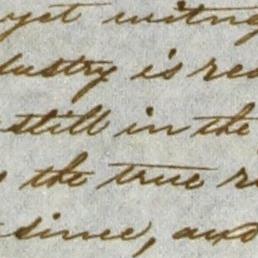 yet witn
dustry is re
still in the
the true r
since, and